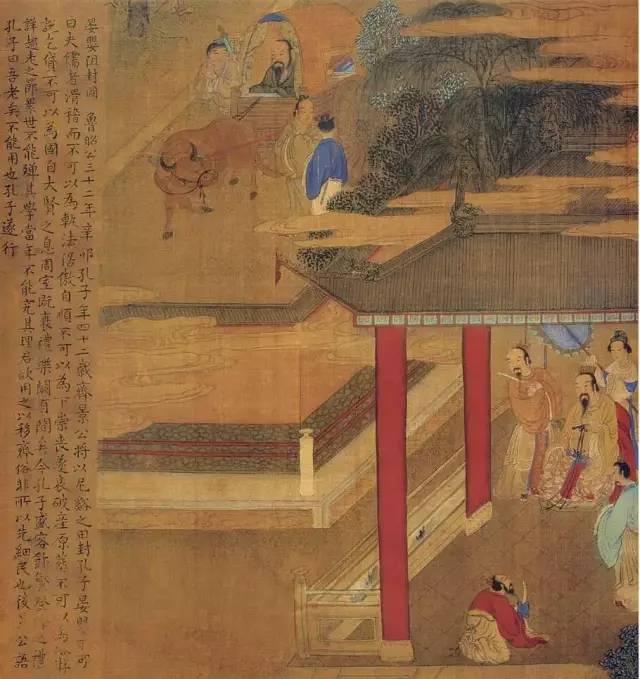 晏嬰阻封圖 魯昭公三十二年辛卯孔子年四十二歲齊景公將以尼谿之田封孔子晏嬰可
曰夫儒者滑稽而不可以為軌法倨傲自順不可以為下崇喪遂哀破產厚葬不可以為
說乞貸不可以為國自大賢之息周室既衰禮樂闕有間矣今孔子盛容飾繁登之禮
詳趨走之節累世不能殫其學當年不能究其理君欲用之以移齊俗非所以先細民也後公語
孔子曰吾老矣不能用也孔子遂行